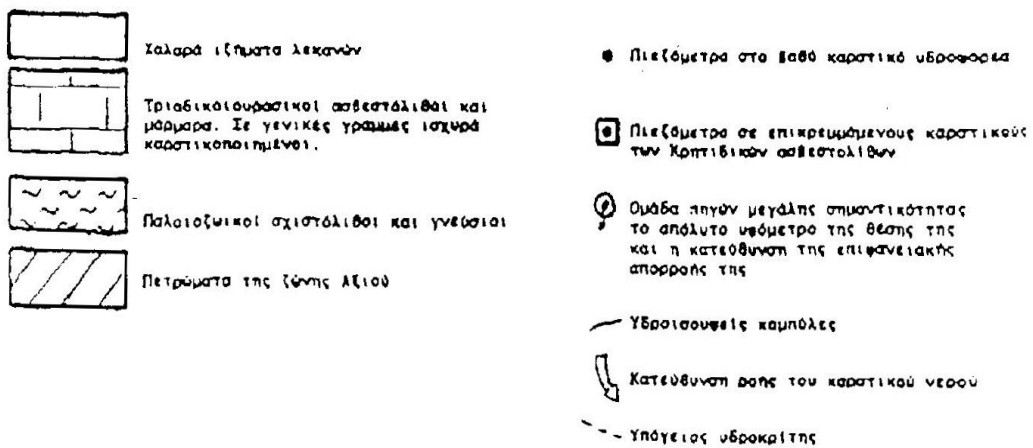 Χαλαρά ιζήματα λεκανών
Τριαδικοιουρασικοί ασβεστόλιθοι και
μάρμαρα. Σε γενικές γραμμές ισχυρά
καρστικοποιημένοι.
Παλαιοζωικοί σχιστόλιθοι και γνεύσιοι
Πετρώματα της ζώνης Αξιού
Πιεζόμετρα στο βαθύ καρστικό υδροφορέα
Πιεζόμετρα σε επικρεμμάμενους καρστικούς
των Κρητιδικών ασβεστολίθων
Ομάδα πηγών μεγάλης σημαντικότητας
το απόλυτο υψόμετρο της θέσης της
και η κατεύθυνση της επιφανειακής
απορροής της
Υδροισουψείς καμπύλες
Κατεύθυνση ροής του καρστικού νερού
Υπόγειος υδροκρίτης